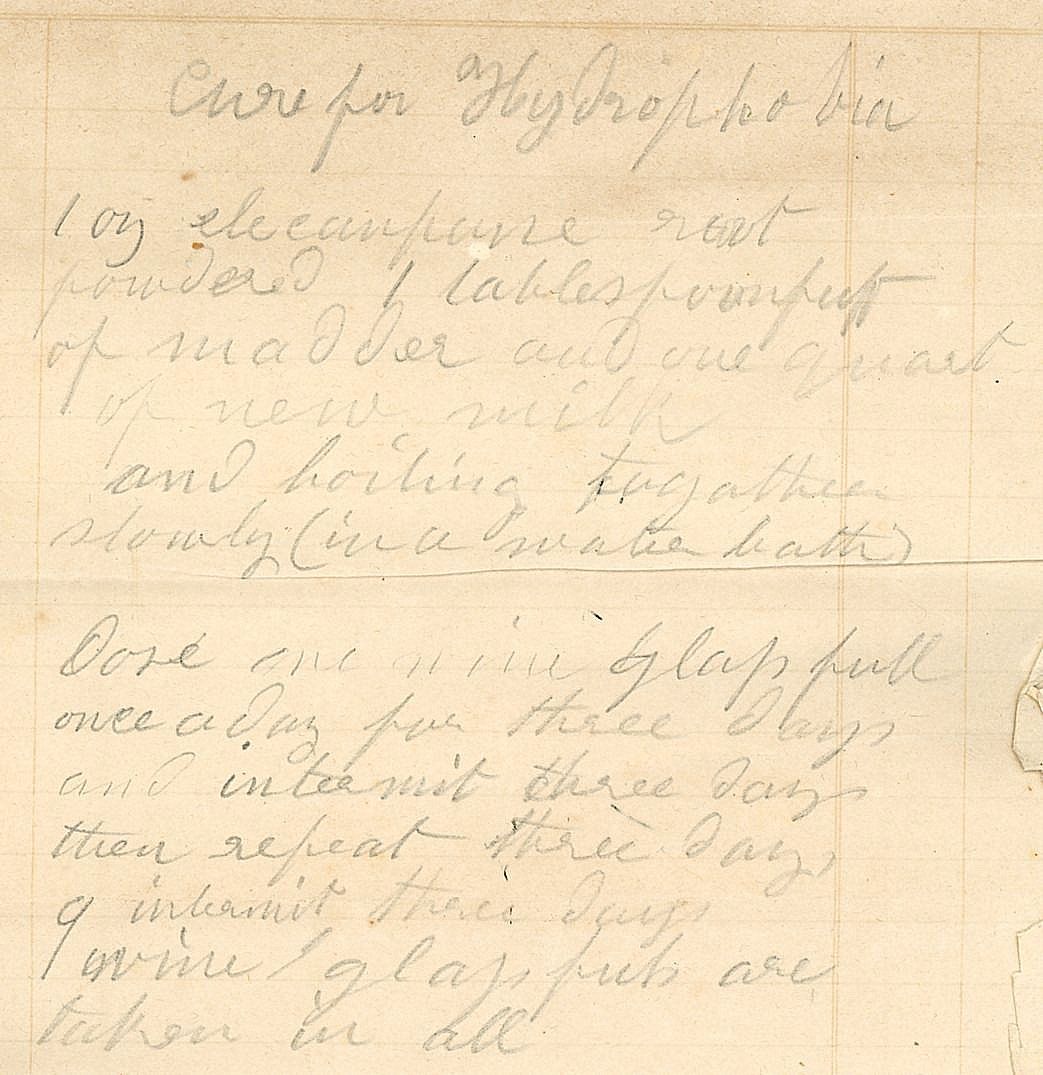 Cure for Hydrophobia
1 oz elecanpane root
powdered 1 tablespoonfull
of madder and one quart
of new milk
and boiling togather
slowly (in a water bath)
Dose one wine glass full
once a day for three days
and intermit three days
then repeat three days
intermit three days
9 wine glassfuls are
taken in all